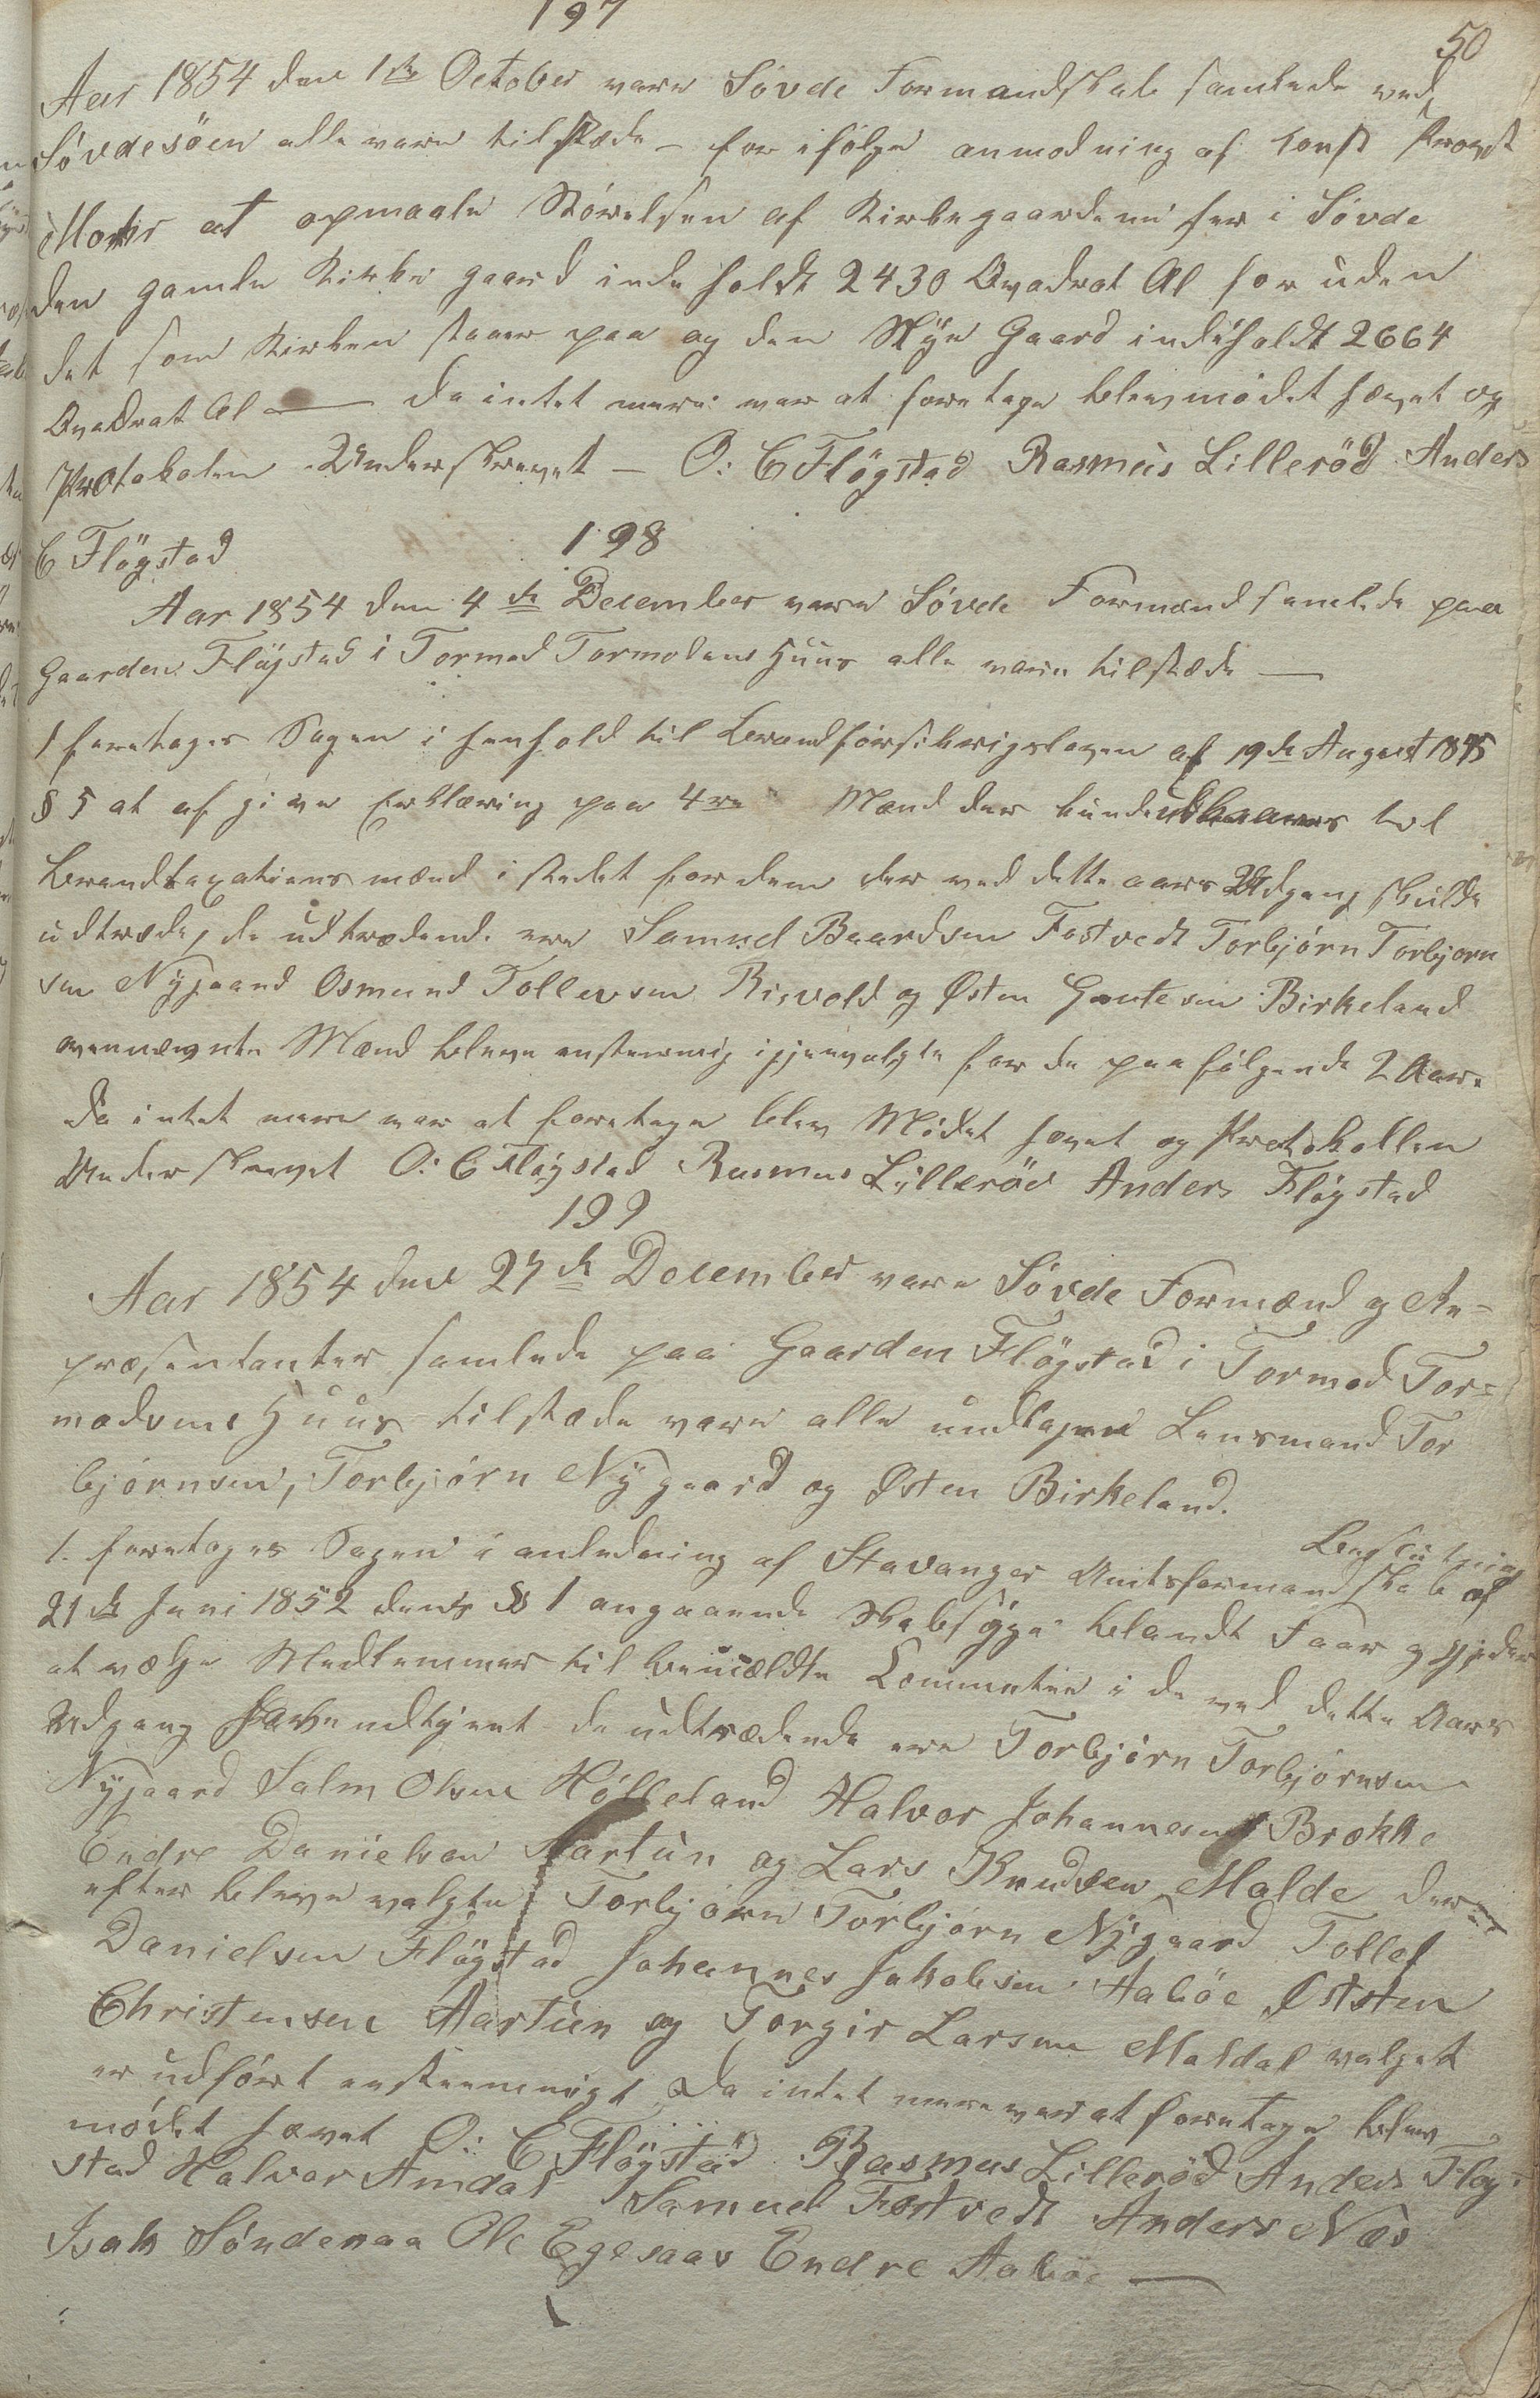 197
50
Aar 1854 den 1ste October vare Søvde Formandskab samlede ved
Søvdesøen alle vare tilstæde - for ifølge anmodning af const Provst
at opmaale Størelsen af Kirkegaardene her i Søvde
den gamle Kirke gaard inde holdt 2430 Qvadrat Al for uden
det som Kirken staaer paa og den Nÿe Gaard indeholdt 2664
Qvadrat Al — da intet mere var at foretage blev mødet hævet og
Protokolen Underskrevet - O: C Fløgstad Rasmus Lillerød Anders
C Fløgstad
198
Aar 1854 den 4de December vare Søvde Formænd samlede paa
Gaarden Fløgstad i Tormod Tormodsens Huus alle vare tilstæde —
1 foretages Sagen i henhold til Brandforsikrigsloven af 19de August 1845
§ 5 at af give Erklæring paa 4re Mænd der kunde udkaares til
Brandtaxations mænd i stedet for dem der ved dette aars Udgang skulde
udtræde, de udtrædende ere Samuel Baardsen Fostvedt Torbjørn Torbjørn
sen Nÿgaard Osmund Tollevsen Risvold og Østen Gautesen Birkeland
ovennevnte Mænd bleve enstemmig igjenvalgte for de paa følgende 2 Aar.
da intet mere var at foretage blev Mødet hævet og Protokollen
Underskrevet O: C Fløgstad Rasmus Lillerød Anders Fløgstad
199
Aar 1854 den 27de December vare Søvde Formænd og Re-
præsentanter samlede paa Gaarden Fløgstad i Tormod Tor=
modsens Huus tilstæde vare alle undtagen Lensmand Tor
bjørnsen, Torbjørn Nÿgaard og Østen Birkeland.
1. foretages Sagen i anledning af Stavanger Amtsformandskabs Beslutning af
21de Juni 1852 dens § 1 angaaende Skabsÿge blandt Faar og Gjeder
at vælge Medlemmer til bemældte Committee i de ved dette Aars
Udgang have udtjent de udtrædende ere Torbjørn Torbjørnsen
Nÿgaard Salm Olsen Hølleland Halvor Johannesen Brække
Endre Danielsen Aartun og Lars Knudsen Molde der=
efter bleve valgte Torbjørn Torbjørn Nÿgaard Tollef
Danielsen Fløgstad Johannes Jakobsen Aabøe Øststen
Christensen Aartun og Torgir Larsen Maldal valget
er udført enstemmigt. Da intet mere var at foretage blev
mødet hævet O: C Fløgstad Rasmus Lillerød Anders Fløg-
stad Halvor Amdal Samuel Fostvedt Anders Næs
Isak Søndenaa Ole Egesaas Endre Aabøe —